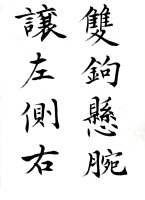 雙鉤懸腕
讓左側右